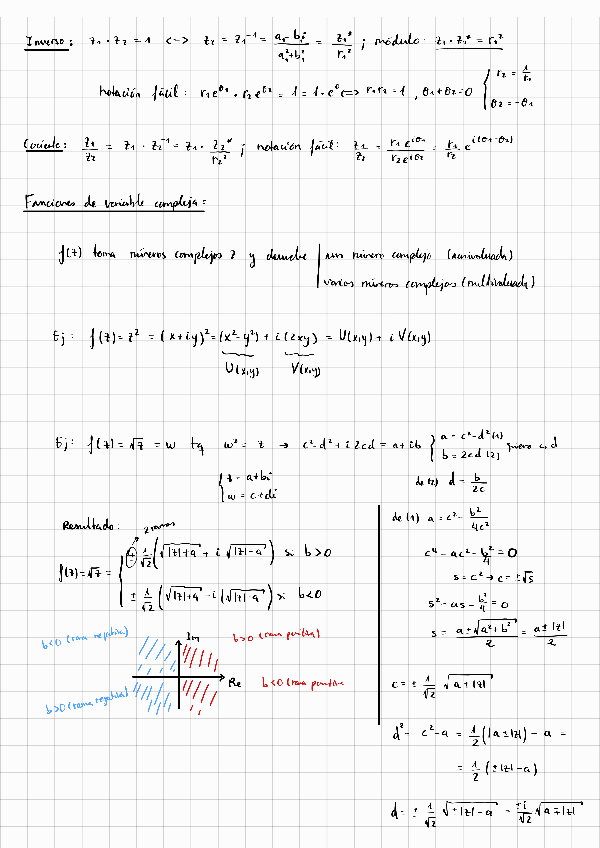 Inverso: z₁ · z₂ = 1 <-> z₂ = z₁⁻¹ = (a₁ - b₁i)/(a₁² + b₁²) = z₁*/r₁² ; módulo: z₁ · z₁* = r₁²
notación fácil: r₁e^θ₁ · r₂e^θ₂ = 1 = 1 · e⁰ <=> r₁r₂ = 1, θ₁+θ₂=0 { r₂ = 1/r₁
θ₂ = -θ₁
Cociente: z₁/z₂ = z₁ · z₂⁻¹ = z₁ · z₂*/r₂² ; notación fácil: z₁/z₂ = r₁e^iθ₁/r₂e^iθ₂ = r₁/r₂ · e^i(θ₁-θ₂)
Funciones de variable compleja:
f(z) toma números complejos z y devuelve | un número complejo (univaluada)
varios números complejos (multivaluada)
Ej: f(z) = z² = (x+iy)² = (x²-y²) + i(2xy) = U(x,y) + i V(x,y)
U(x,y) V(x,y)
Ej: f(z) = √z = w tq w² = z → c²-d²+i2cd = a+ib { a = c²-d² (1)
b = 2cd (2) quiero c, d
{ z = a+bi
w = c+di
de (2) d = b/2c
Resultado: 2 ramas
f(z) = √z = { ± 1/√2 (√|z|+a + i √|z|-a) si b>0
± 1/√2 (√|z|+a - i √|z|-a) si b<0
b<0 (rama negativa) Im b>0 (rama positiva)
Re b<0 (rama positiva
b>0 (rama negativa)
de (1) a = c² - b²/4c²
c⁴ - ac² - b²/4 = 0
s = c² → c = ±√s
s² - as - b²/4 = 0
s = (a±√a²+b²)/2 = (a±|z|)/2
c = ± 1/√2 √a+|z|
d² = c²-a = 1/2 (a±|z|) - a =
= 1/2 (±|z|-a)
d = ± 1/√2 √±|z|-a = ±i/√2 √a∓|z|